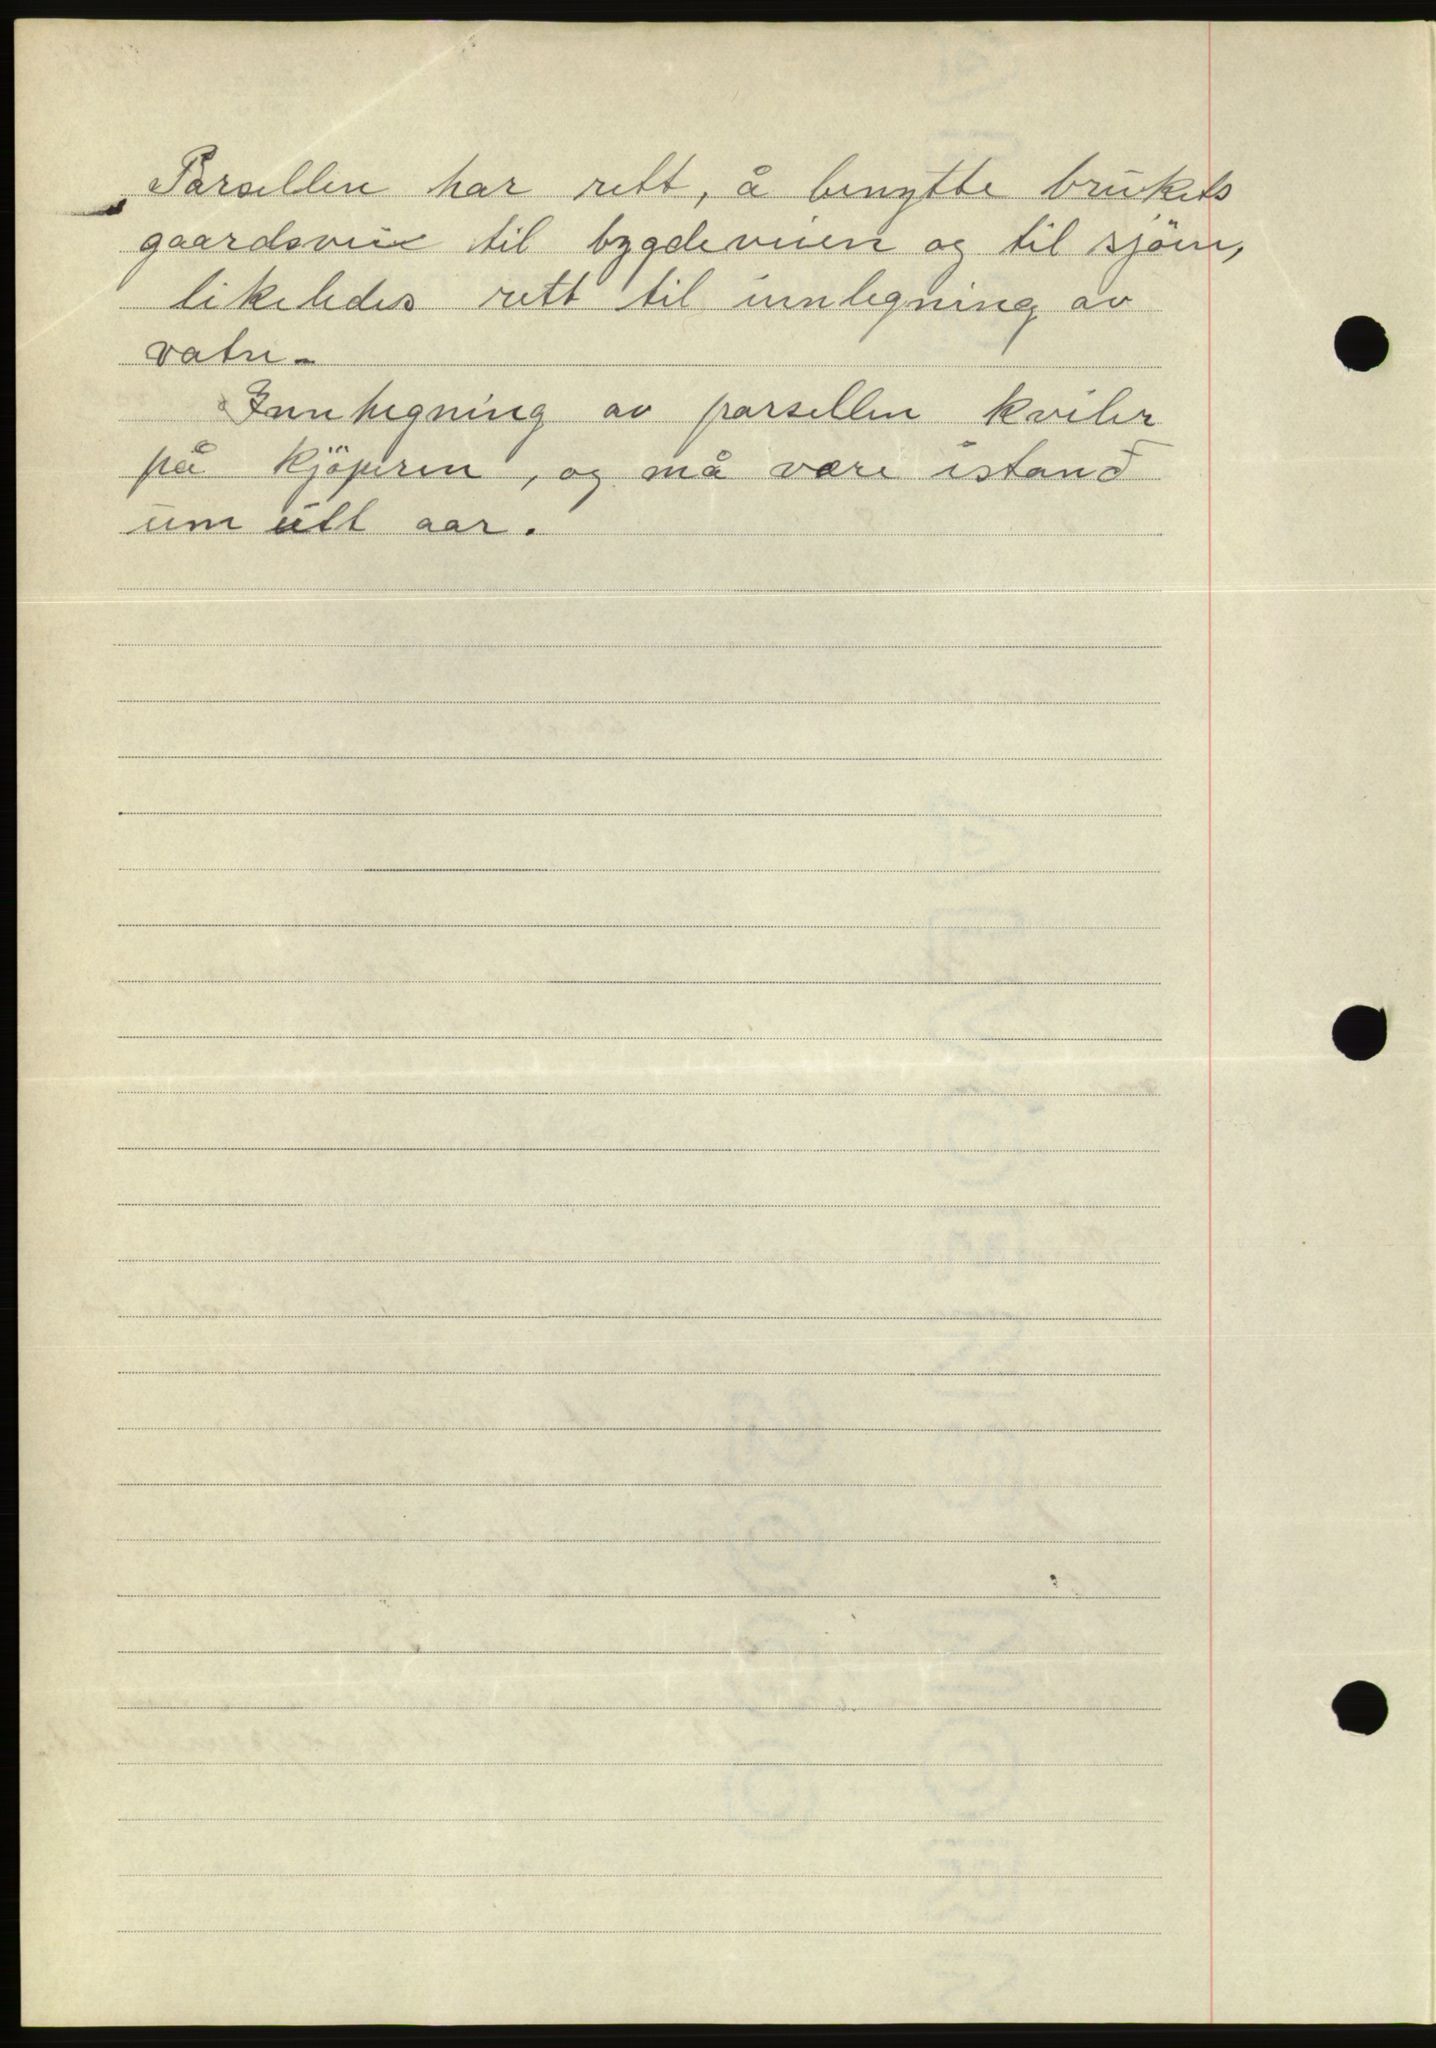 Parsellen har rett, å benytte brukets
gaardsvei til bygdeveien og til sjöen,
likeledes rett til innlegning av
vatn.
Innhegning av parsellen kviler
på kjöperen, og må være istand
um ett aar.